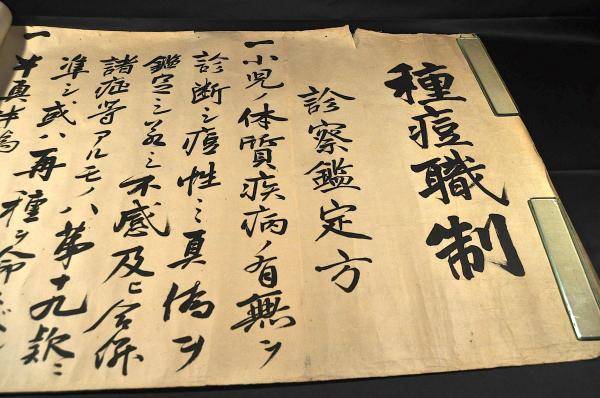 種痘職制
診察鑑定方
一小児ノ体質疾病ノ有無ヲ
診断シ痘性ノ真偽ヲ
鑑定シ若シ不感及ヒ合併
諸症等アルモノハ第十九款ニ
準シ或ハ再種ヲ命
一半真半偽